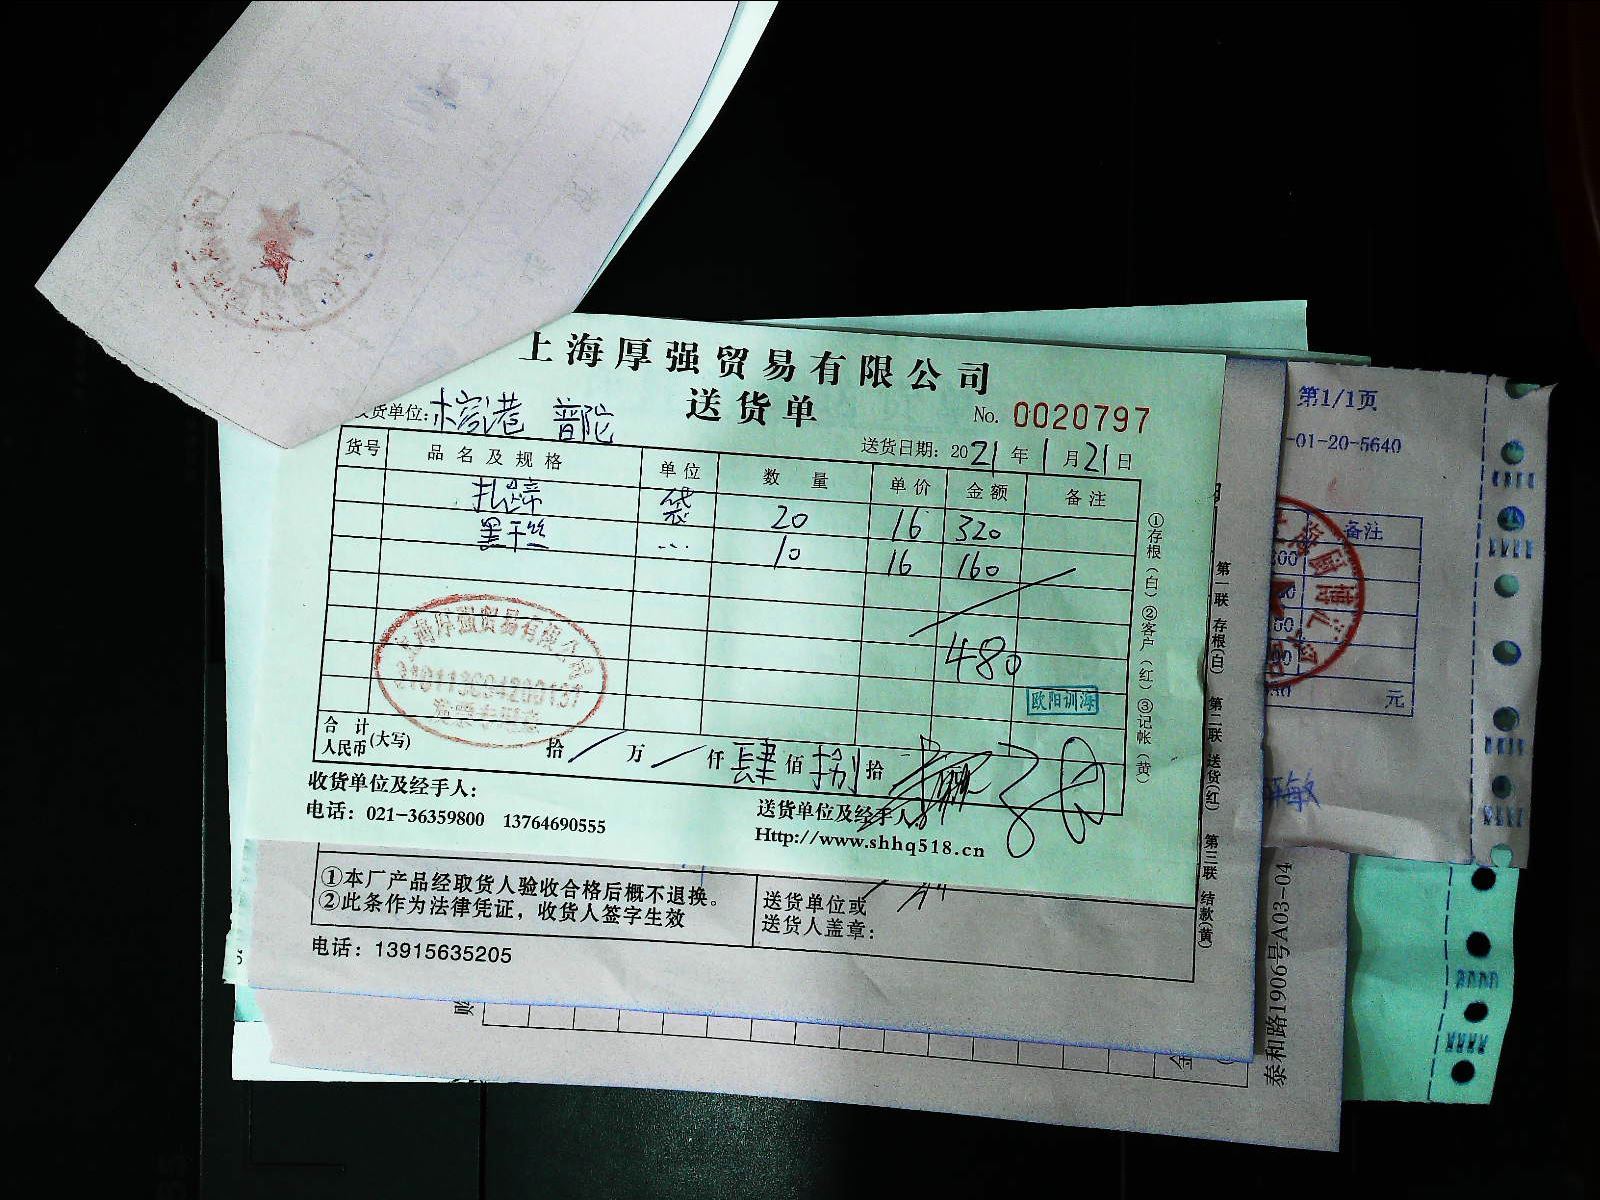 上海厚强贸易有限公司
送货单
No. 0020797
货单位: 榕港 普陀
送货日期: 2021年1月21日
货号 品名及规格 单位 数量 单价 金额 备注
扎蹄 袋 20 16 320
黑干丝 … 10 16 160
480
欧阳训海
上海厚强贸易有限公司
发票专用章
合计人民币(大写) 拾 / 万 / 仟 肆 佰 捌 拾
收货单位及经手人:
送货单位及经手人
电话: 021-36359800 13764690555
Http://www.shhq518.cn
①存根(白) ②客户(红) ③记帐(黄)
①本厂产品经取货人验收合格后概不退换。
②此条作为法律凭证，收货人签字生效
送货单位或
送货人盖章:
电话: 13915635205
第一联 存根(白) 第二联 送货(红) 第三联 结款(黄)
第1/1页
-01-20-5640
备注
元
敏
泰和路1906号A03-04